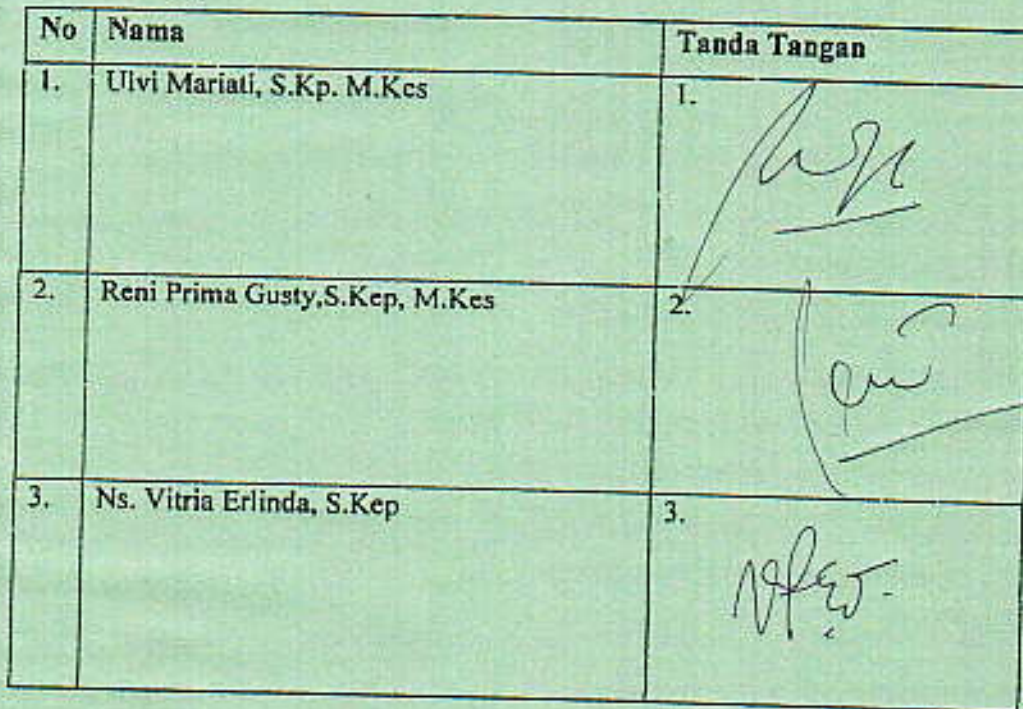 No Nama Tanda Tangan
1. Ulvi Mariati, S.Kp. M.Kes 1.
2. Reni Prima Gusty,S.Kep, M.Kes 2.
3. Ns. Vitria Erlinda, S.Kep 3.